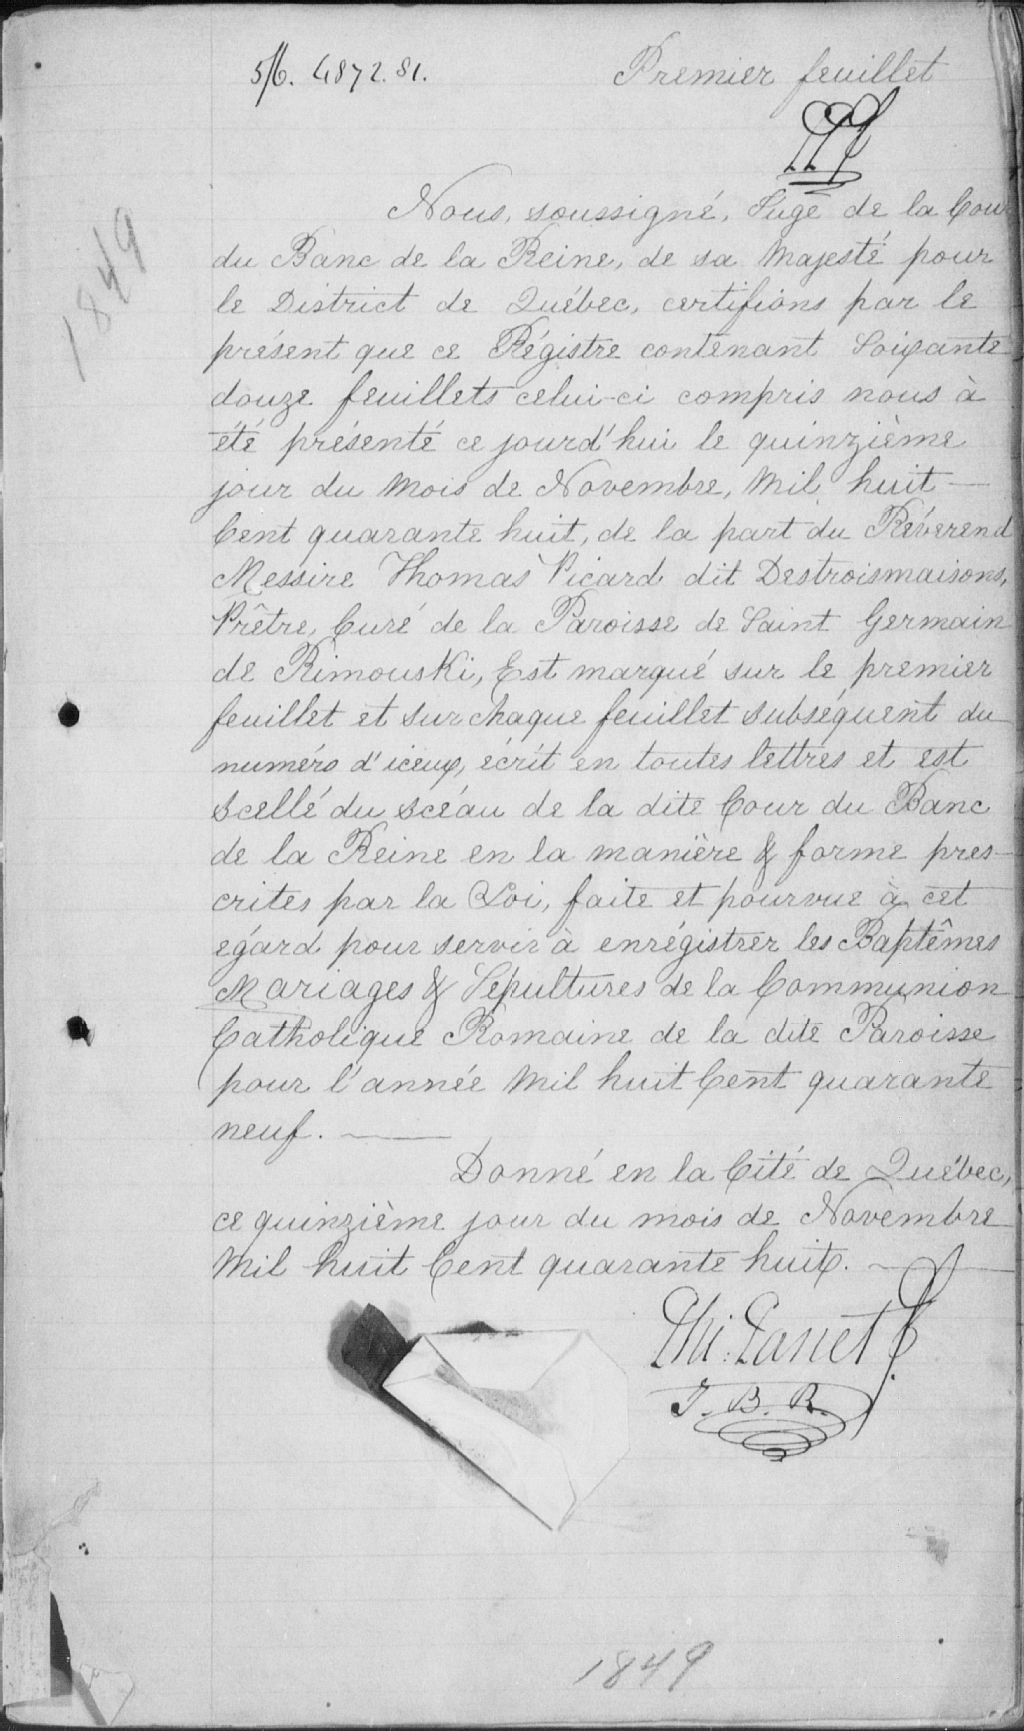 5/6. 4872.81.
Premier feuillet
1849
Nous, soussigné, Juge de la Cour
du Banc de la Reine, de sa Majesté pour
le District de Québec, certifions par le
présent que ce Régistre contenant Soixante
douze feuillets celui-ci compris nous à
été présenté ce jourd'hui le quinzième
jour du Mois de Novembre, Mil huit —
Cent quarante huit, de la part du Réverend
Messire Thomas Picard dit Destroismaisons,
Prêtre, Curé de la Paroisse de Saint Germain
de Rimouski, Est marqué sur le premier
feuillet et sur chaque feuillet subséquent du
numéro d'iceux, écrit en toutes lettres et est
scellé du scéau de la dite Cour du Banc
de la Reine en la manière & forme pres-
crites par la Loi, faite et pourvue à cet
egárd pour servir à enrégistrer les Baptêmes
Mariages & Sépultures de la Communion
Catholique Romaine de la dite Paroisse
pour l'année Mil huit Cent quarante
neuf. —
Donné en la Cité de Québec,
ce quinzième jour du mois de Novembre
Mil huit Cent quarante huit. —
Phi: Panet
J. B. R.
1849